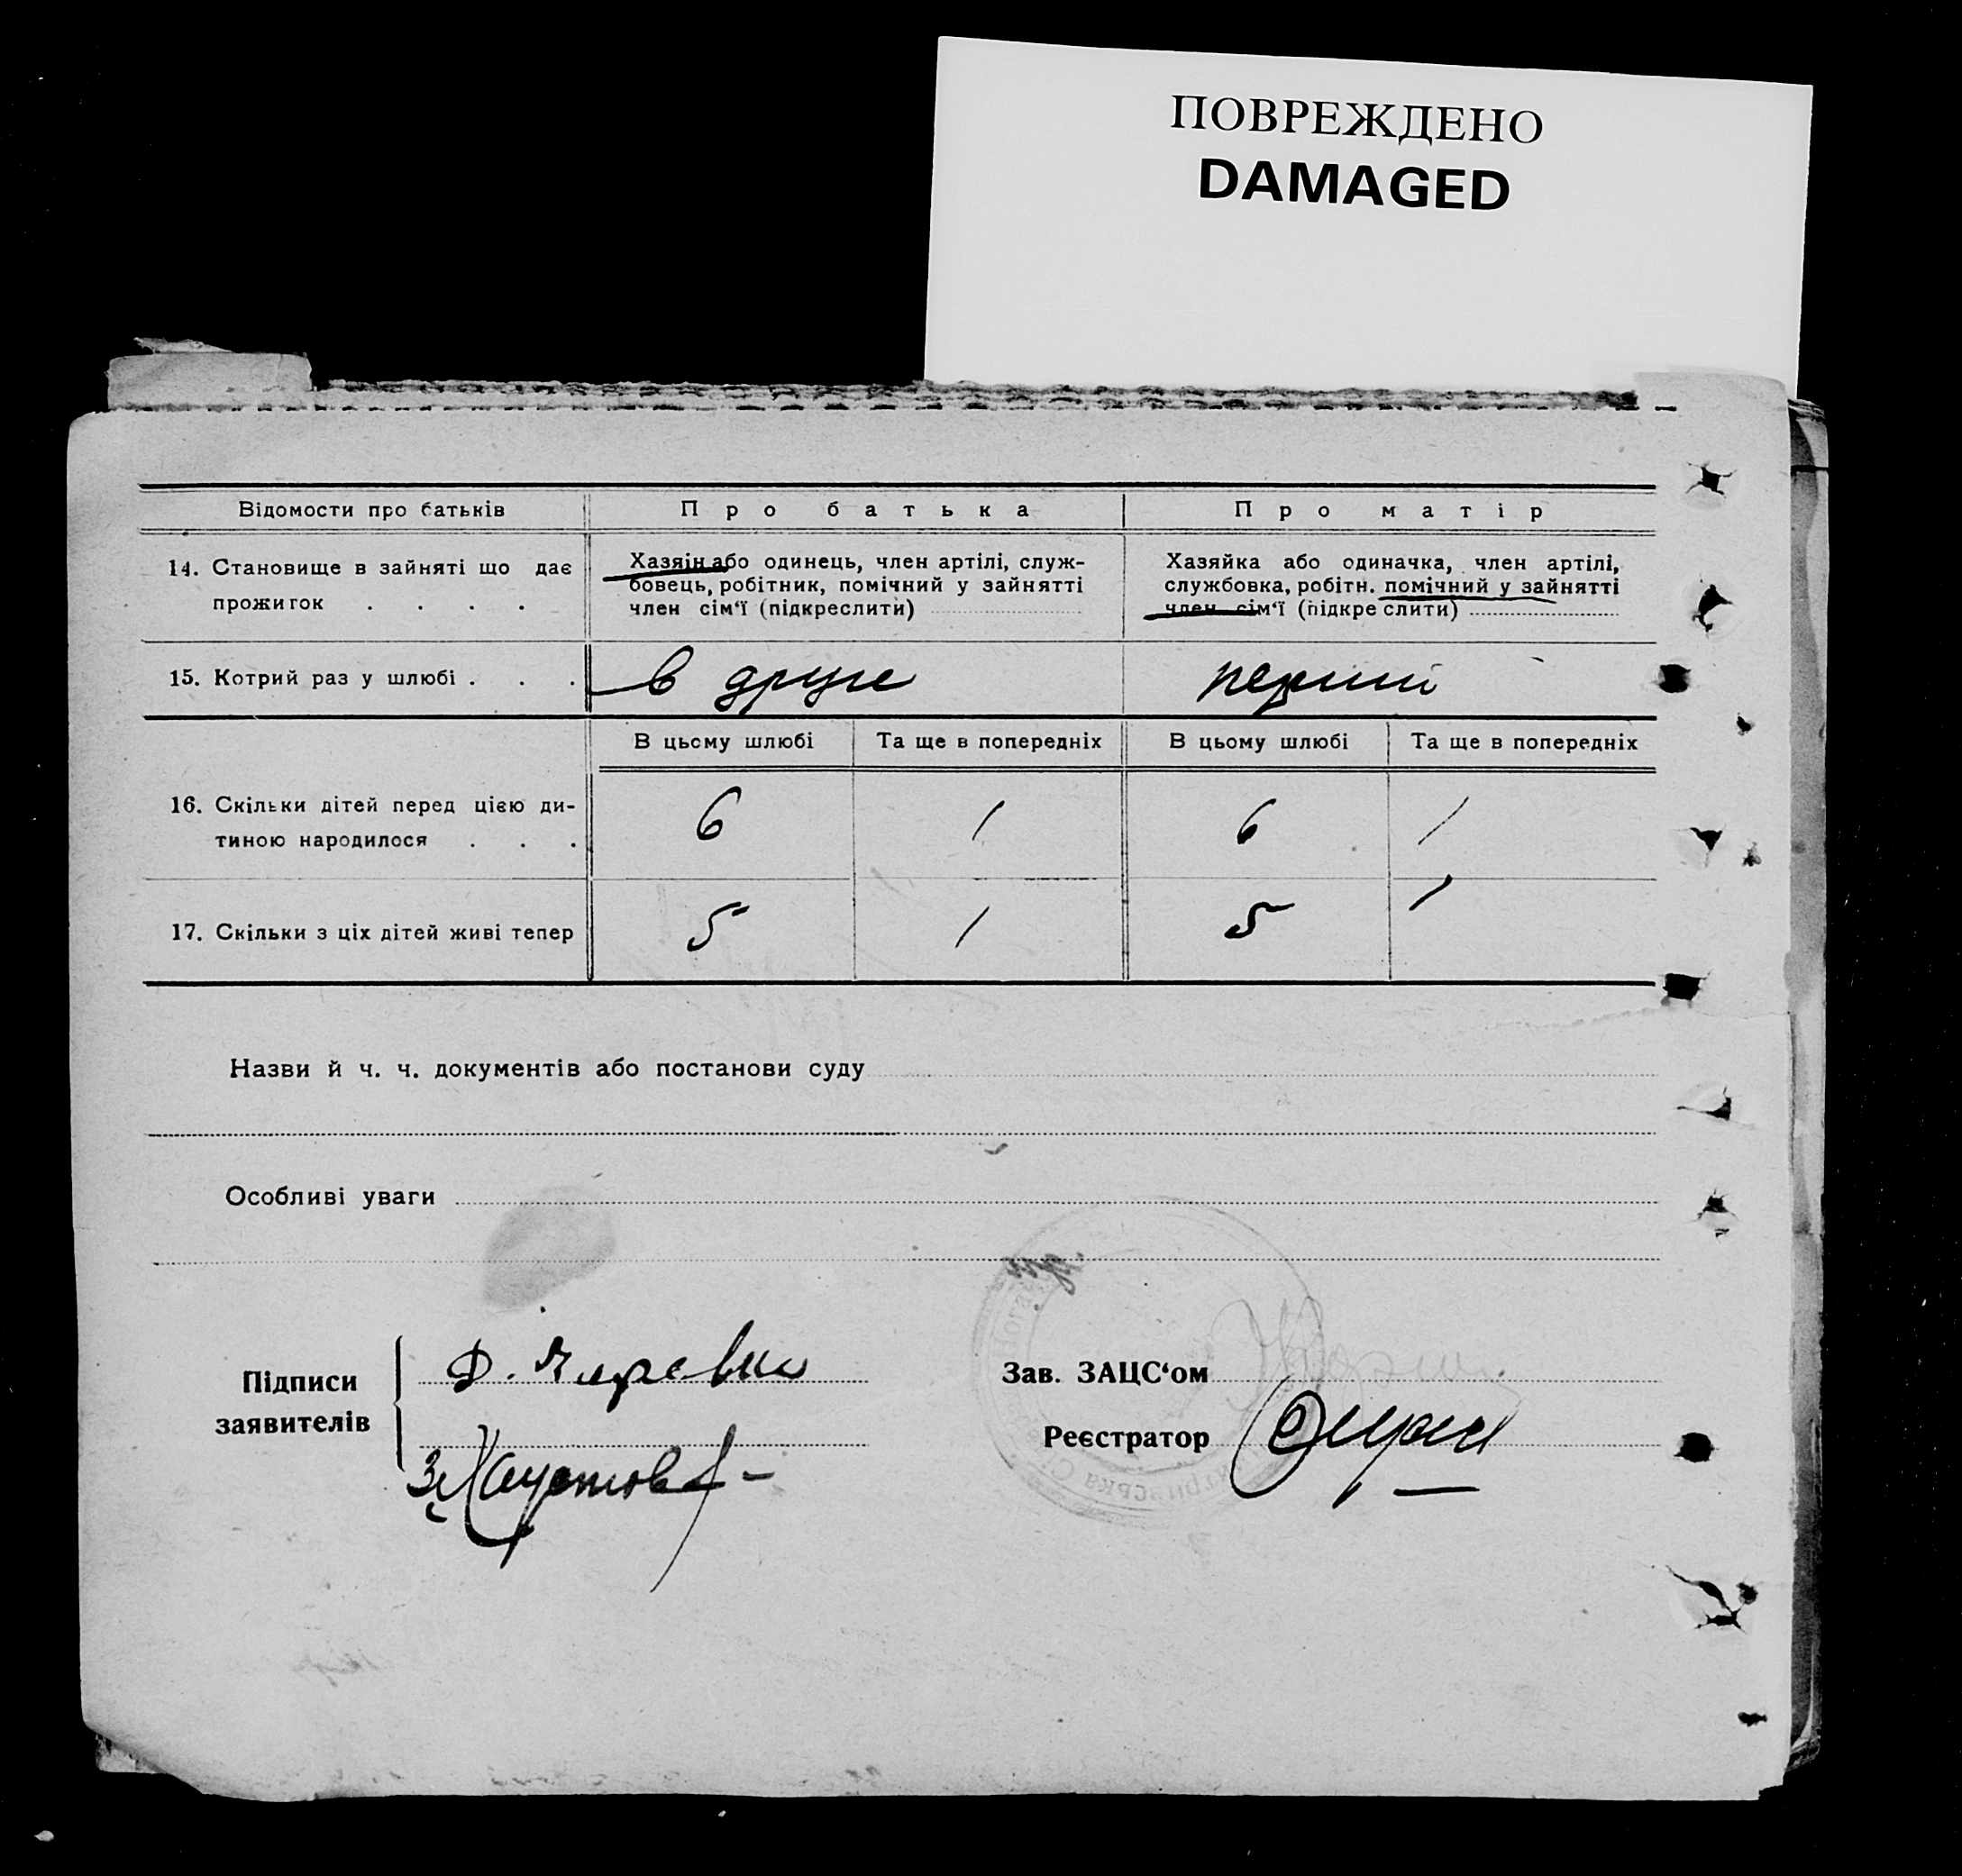 ПОВРЕЖДЕНО
DAMAGED
Відомости про батьків Про батька Про матір
14. Становище в зайняті що дає прожиток . . . .
Хазяін або одинець, член артілі, служ-
бовець, робітник, помічний у зайнятті
член сім‘ї (підкреслити)
Хазяйка або одиначка, член артілі,
службовка, робітн. помічний у зайнятті
член сім‘ї (підкреслити)
15. Котрий раз у шлюбі . . . в друге перший
В цьому шлюбі Та ще в попередніх В цьому шлюбі Та ще в попередніх
16. Скільки дітей перед цією ди-
тиною народилося . . . 6 / 6 /
17. Скільки з ціх дітей живі тепер 5 / 5 /
Назви й ч. ч. документів або постанови суду
Особливі уваги
Підписи
заявителів
Зав. ЗАЦС‘ом
Реєстратор